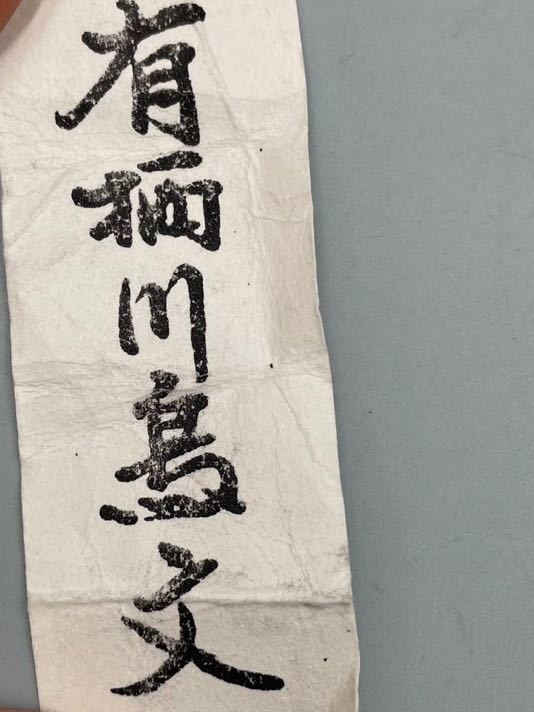 有栖川鳥文